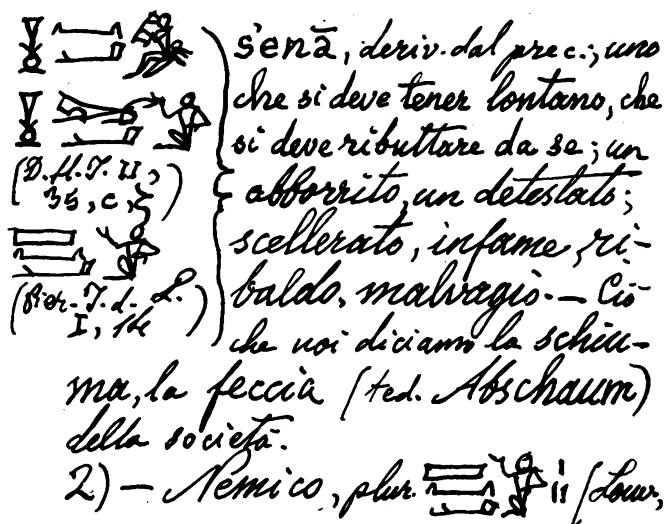 s'enā, deriv. dal prec.; uno
che si deve tener lontano, che
si deve ributtare da se; un
(D.H.T. II,
35, c,
abborrito, un detestato;
scellerato, infame, ri-
(Pier. T. d. L.
I, 14)
baldo, malvagio. — Ciò
che noi diciamo la schiu-
ma, la feccia (ted. Abschaum)
della società.
2) — Nemico, plur. (Louv,